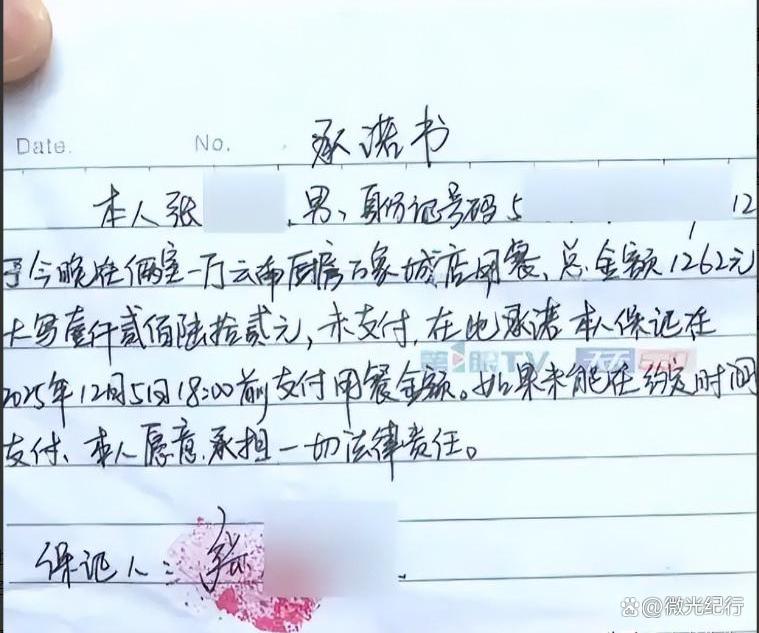 Date. No. 承诺书
本人张 ,男、身份证号码5 12
于今晚在俩室一厅云南厨房万象城店用餐、总金额1262元
大写壹仟贰佰陆拾贰元,未支付,在此承诺本人保证在
第1眼TV
2025年12月5日18:00前支付用餐金额。如果未能在约定时间
支付、本人愿意承担一切法律责任。
保证人:张
百家号@微光纪行